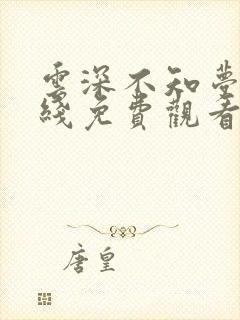 雲深不知夢
綫免費觀看
唐皇